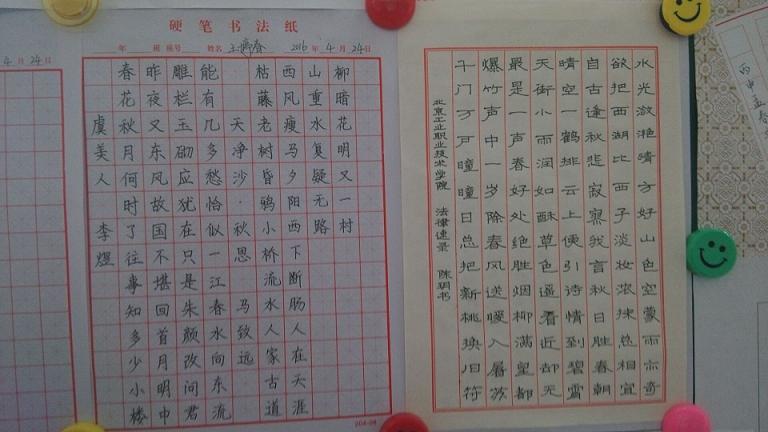 4月24日
硬笔书法纸
年 班 座号 姓名 2016年4月24日
虞美人 李煜
春花秋月何时了往事知多少小楼
昨夜又东风故国不堪回首月明中
雕栏玉砌应犹在只是朱颜改问君
能有几多愁恰似一江春水向东流
天净沙·秋思 马致远
枯藤老树昏鸦小桥流水人家古道
西风瘦马夕阳西下断肠人在天涯
山重水复疑无路
柳暗花明又一村
水光潋滟晴方好山色空蒙雨亦奇
欲把西湖比西子淡妆浓抹总相宜
自古逢秋悲寂寥我言秋日胜春朝
晴空一鹤排云上便引诗情到碧霄
天街小雨润如酥草色遥看近却无
最是一声春好处绝胜烟柳满皇都
爆竹声中一岁除春风送暖入屠苏
千门万户瞳瞳日总把新桃换旧符
北京工业职业技术学院 法律速录 陈玥书
丙申孟春